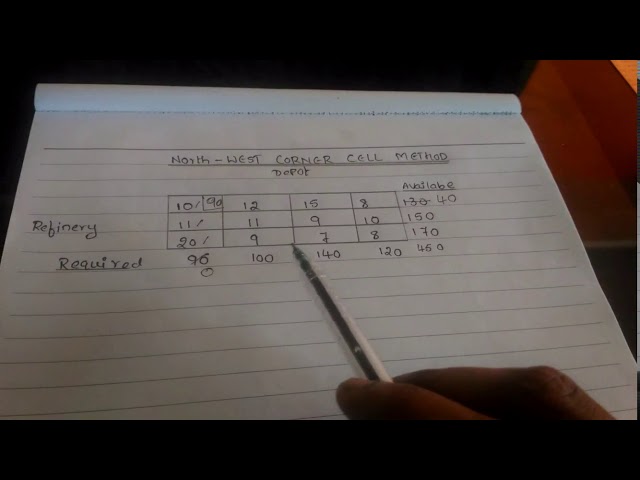 North-WEST CORNER CELL METHOD
DEPOT
Available
10/ 90 12 15 8 130 40
Refinery 11/ 11 9 10 150
20/ 9 7 8 170
Required 90 100 140 120 450
0